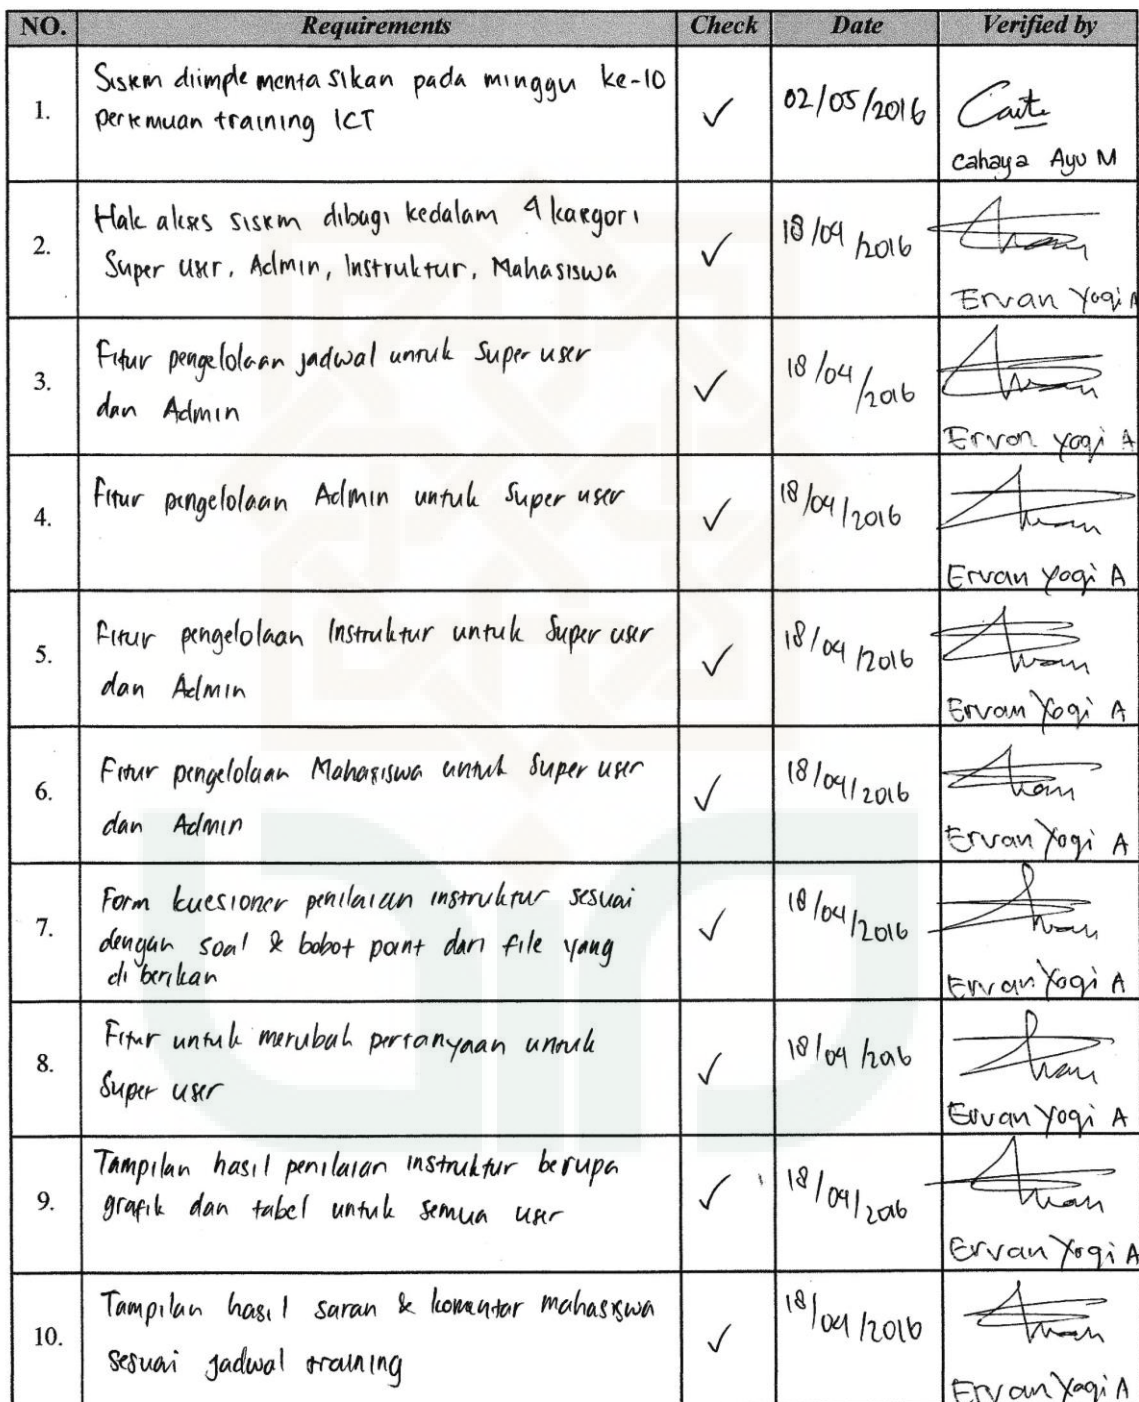 NO. Requirements Check Date Verified by
1. Sistem diimplementasikan pada minggu ke-10 ✓ 02/05/2016
pertemuan training ICT
Cahaya Ayu M
2. Hak akses sistem dibagi kedalam 4 kategori ✓ 18/04/2016
Super user, Admin, Instruktur, Mahasiswa
Ervan Yogi A
3. Fitur pengelolaan jadwal untuk Super user ✓ 18/04/2016
dan Admin
Ervan Yogi A
4. Fitur pengelolaan Admin untuk Super user ✓ 18/04/2016
Ervan Yogi A
5. Fitur pengelolaan Instruktur untuk Super user ✓ 18/04/2016
dan Admin
Ervan Yogi A
6. Fitur pengelolaan Mahasiswa untuk Super user ✓ 18/04/2016
dan Admin
Ervan Yogi A
7. Form kuesioner penilaian instruktur sesuai ✓ 18/04/2016
dengan soal & bobot point dari file yang
diberikan
Ervan Yogi A
8. Fitur untuk merubah pertanyaan untuk ✓ 18/04/2016
Super user
Ervan Yogi A
9. Tampilan hasil penilaian instruktur berupa ✓ 18/04/2016
grafik dan tabel untuk semua user
Ervan Yogi A
10. Tampilan hasil saran & komentar mahasiswa ✓ 18/04/2016
sesuai jadwal training
Ervan Yogi A